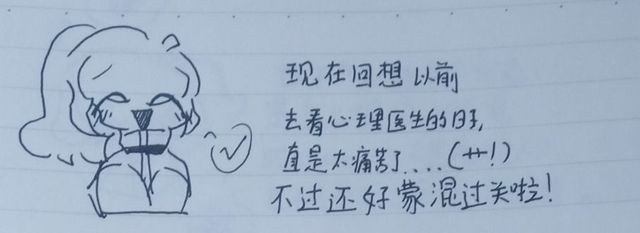 现在回想以前
去看心理医生的日子,
直是太痛苦了....(艹!)
不过还好蒙混过关啦!